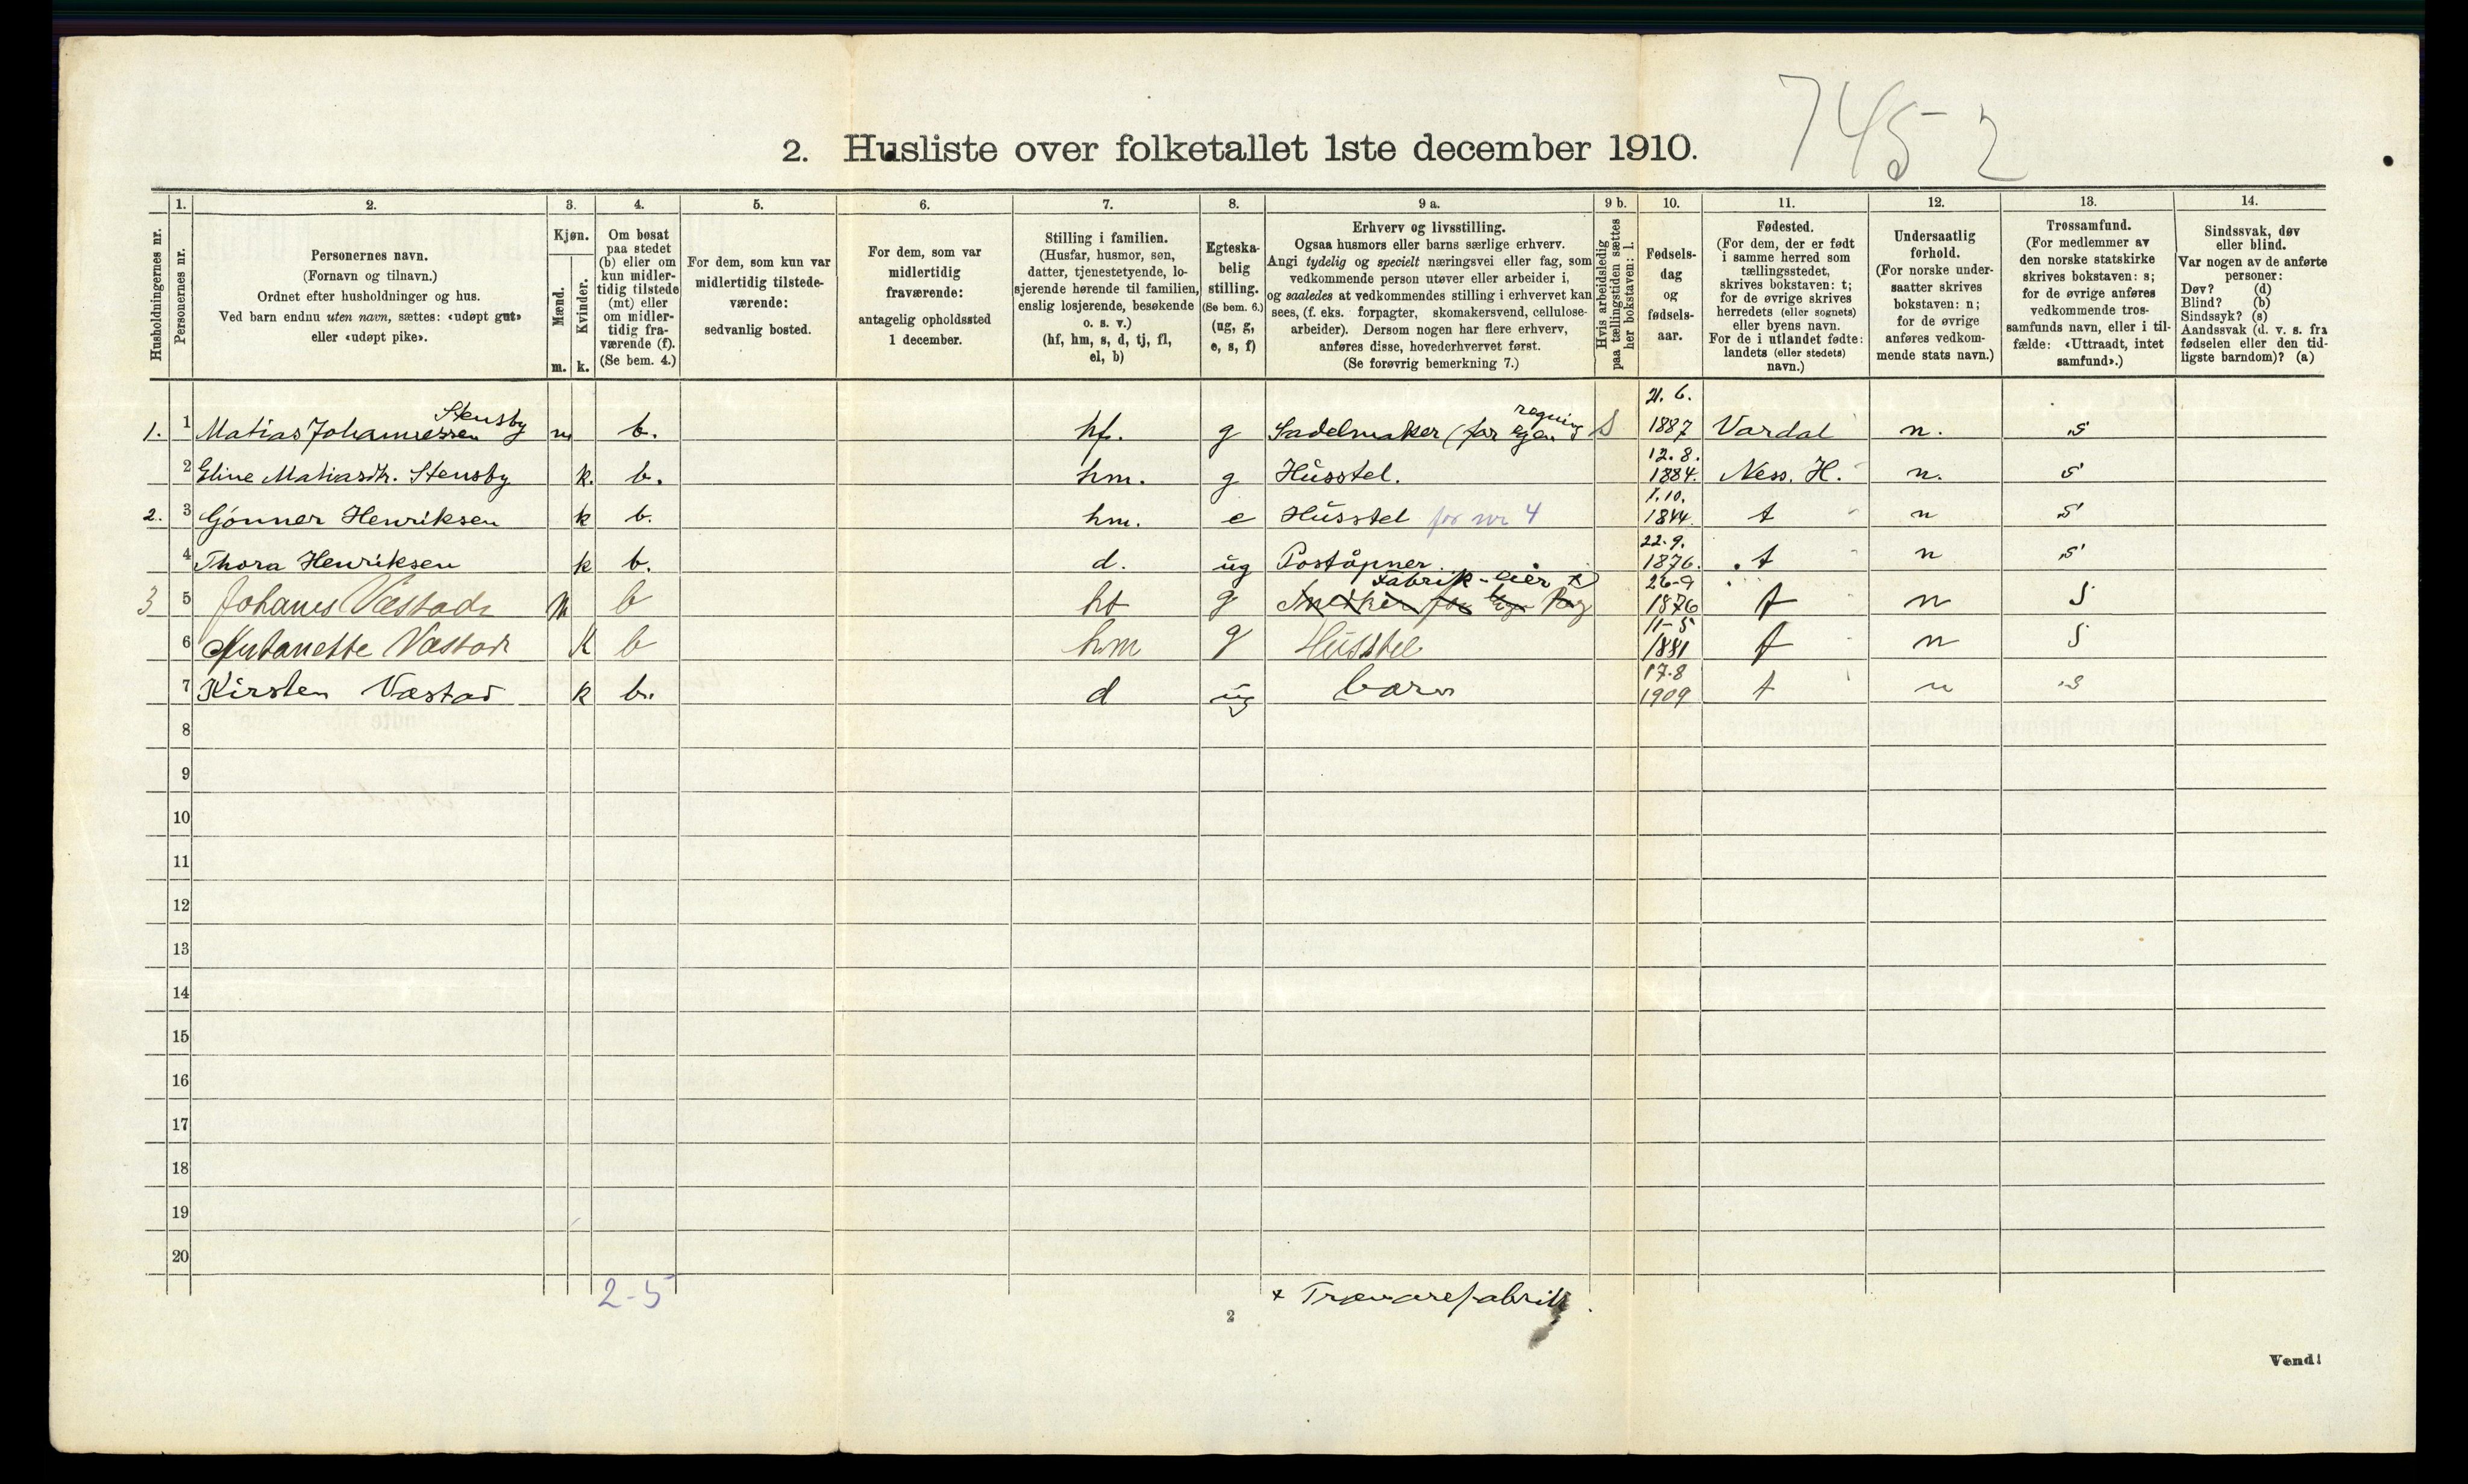 7452
2. Husliste over folketallet 1ste december 1910.
Husholdningernes nr.
1. Personernes nr.
2. Personernes navn.
(Fornavn og tilnavn.)
Ordnet efter husholdninger og hus.
Ved barn endnu uten navn, sættes: «udøpt gut»
eller «udøpt pike».
3. Kjøn.
Mænd. m.
Kvinder. k.
4. Om bosat
paa stedet
(b) eller om
kun midler-
tidig tilstede
(mt) eller
om midler-
tidig fra-
værende (f).
(Se bem. 4.)
5. For dem, som kun var
midlertidig tilstede-
værende:
sedvanlig bosted.
6. For dem, som var
midlertidig
fraværende:
antagelig opholdssted
1 december.
7. Stilling i familien.
(Husfar, husmor, søn,
datter, tjenestetyende, lo-
sjerende hørende til familien,
enslig losjerende, besøkende
o. s. v.)
(hf, hm, s, d, tj, fl,
el, b)
8. Egteska-
belig
stilling.
(Se bem. 6.)
(ug, g,
e, s, f)
9 a. Erhverv og livsstilling.
Ogsaa husmors eller barns særlige erhverv.
Angi tydelig og specielt næringsvei eller fag, som
vedkommende person utøver eller arbeider i,
og saaledes at vedkommendes stilling i erhvervet kan
sees, (f. eks. forpagter, skomakersvend, cellulose-
arbeider). Dersom nogen har flere erhverv,
anføres disse, hovederhvervet først.
(Se forøvrig bemerkning 7.)
9 b. Hvis arbeidsledig
paa tællingstiden sættes
her bokstaven: l.
10. Fødsels-
dag
og
fødsels-
aar.
11. Fødested.
(For dem, der er født
i samme herred som
tællingsstedet,
skrives bokstaven: t;
for de øvrige skrives
herredets (eller sognets)
eller byens navn.
For de i utlandet fødte:
landets (eller stedets)
navn.)
12. Undersaatlig
forhold.
(For norske under-
saatter skrives
bokstaven: n;
for de øvrige
anføres vedkom-
mende stats navn.)
13. Trossamfund.
(For medlemmer av
den norske statskirke
skrives bokstaven: s;
for de øvrige anføres
vedkommende tros-
samfunds navn, eller i til-
fælde: «Uttraadt, intet
samfund».)
14. Sindssvak, døv
eller blind.
Var nogen av de anførte
personer:
Døv? (d)
Blind? (b)
Sindssyk? (s)
Aandssvak (d. v. s. fra
fødselen eller den tid-
ligste barndom)? (a)
1. 1 Matias Johannessen Stensby m b. hf. g Sadelmaker (for egen regning S 21. 6. 1887 Vardal n. s
2 Eline Matiasdtr. Stensby k. b. hm. g Husstel. 12. 8. 1884. Ness. H. n. s
2. 3 Gønner Henriksen k b. hm. e Husstel for nr 4 1. 10. 1844. t n s
4 Thora Henriksen k b. d. ug Poståpner. 22. 9. 1876. t n s
3 5 Johanes Væstad m b hf g Snekker for egen Reg Fabrik-eier x 26-9 1876 t n s
6 Antanette Væstad k b hm g Husstel 11-5 1881 t n s
7 Kirsten Væstad k b. d ug barn 17. 8 1909 t n s
8
9
10
11
12
13
14
15
16
17
18
19
20
2-5
x Trævarefabrikk.
2
Vend!